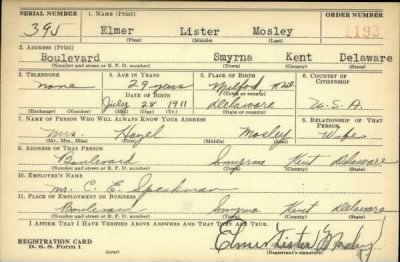 SERIAL NUMBER 1. NAME (Print) ORDER NUMBER
395 Elmer Lister Mosley 1193
(First) (Middle) (Last)
2. ADDRESS (Print)
Boulevard Smyrna Kent Delaware
(Number and street or R. F. D. number) (Town) (County) (State)
3. TELEPHONE 4. AGE IN YEARS 5. PLACE OF BIRTH 6. COUNTRY OF CITIZENSHIP
none 29 years Milford R.D.
DATE OF BIRTH (Town or county)
July 28 1911 Delaware U.S.A.
(Exchange) (Number) (Mo.) (Day) (Yr.) (State or country)
7. NAME OF PERSON WHO WILL ALWAYS KNOW YOUR ADDRESS 8. RELATIONSHIP OF THAT PERSON
Mrs. Hazel Mosley Wife
(Mr., Mrs., Miss) (First) (Middle) (Last)
9. ADDRESS OF THAT PERSON
Boulevard Smyrna Kent Delaware
(Number and street or R. F. D. number) (Town) (County) (State)
10. EMPLOYER'S NAME
Mr. C. E. Speakman
11. PLACE OF EMPLOYMENT OR BUSINESS
Boulevard Smyrna Kent Delaware
(Number and street or R. F. D. number) (Town) (County) (State)
I AFFIRM THAT I HAVE VERIFIED ABOVE ANSWERS AND THAT THEY ARE TRUE.
REGISTRATION CARD Elmer Lister Mosley
D. S. S. Form 1 (over) (Registrant's signature)